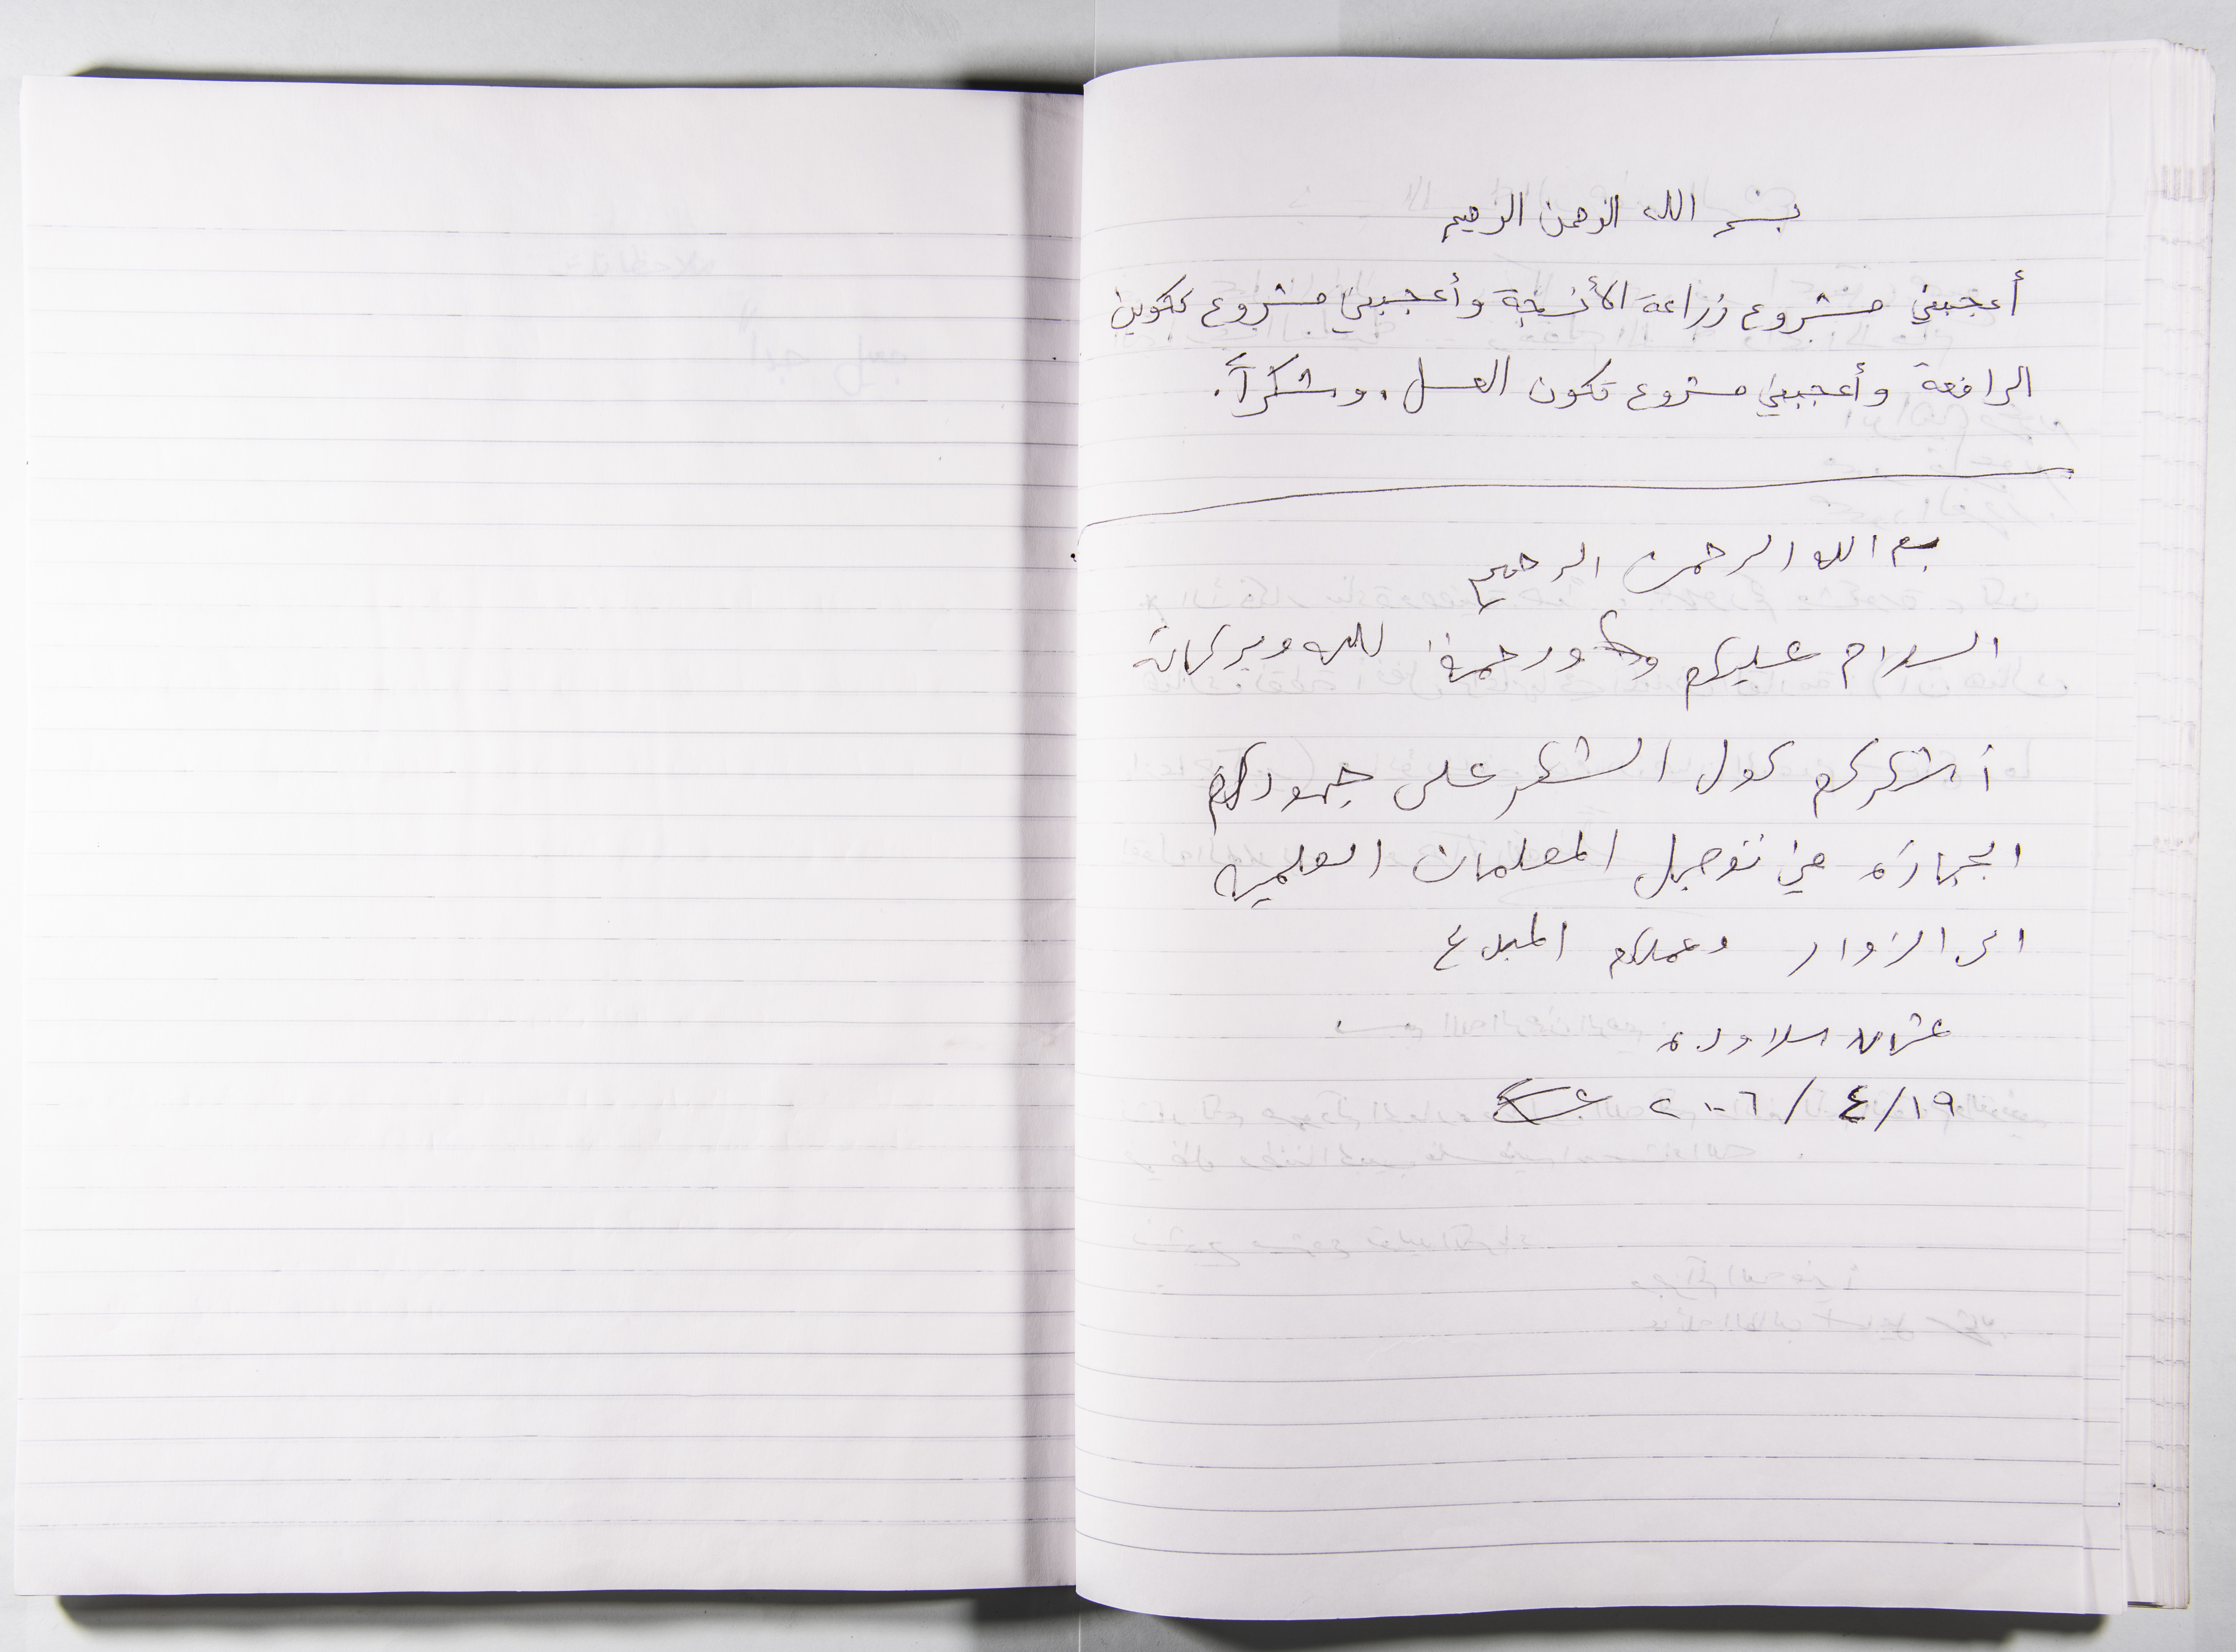 بسم الله الرحمن الرحيم
أعجبني مشروع زراعة الأنسجة وأعجبني مشروع تكوين
الرافعة وأعجبني مشروع تكون العسل. وشكراً.
بسم الله الرحمن الرحيم
السلام عليكم ورحمة الله وبركاته
أشكركم كول الشكر على جهودكم
الجبارة في توصيل المعلمات العلمية
الى الزوار وعملكم المبدع
١٩/٤/٢٠٠٦